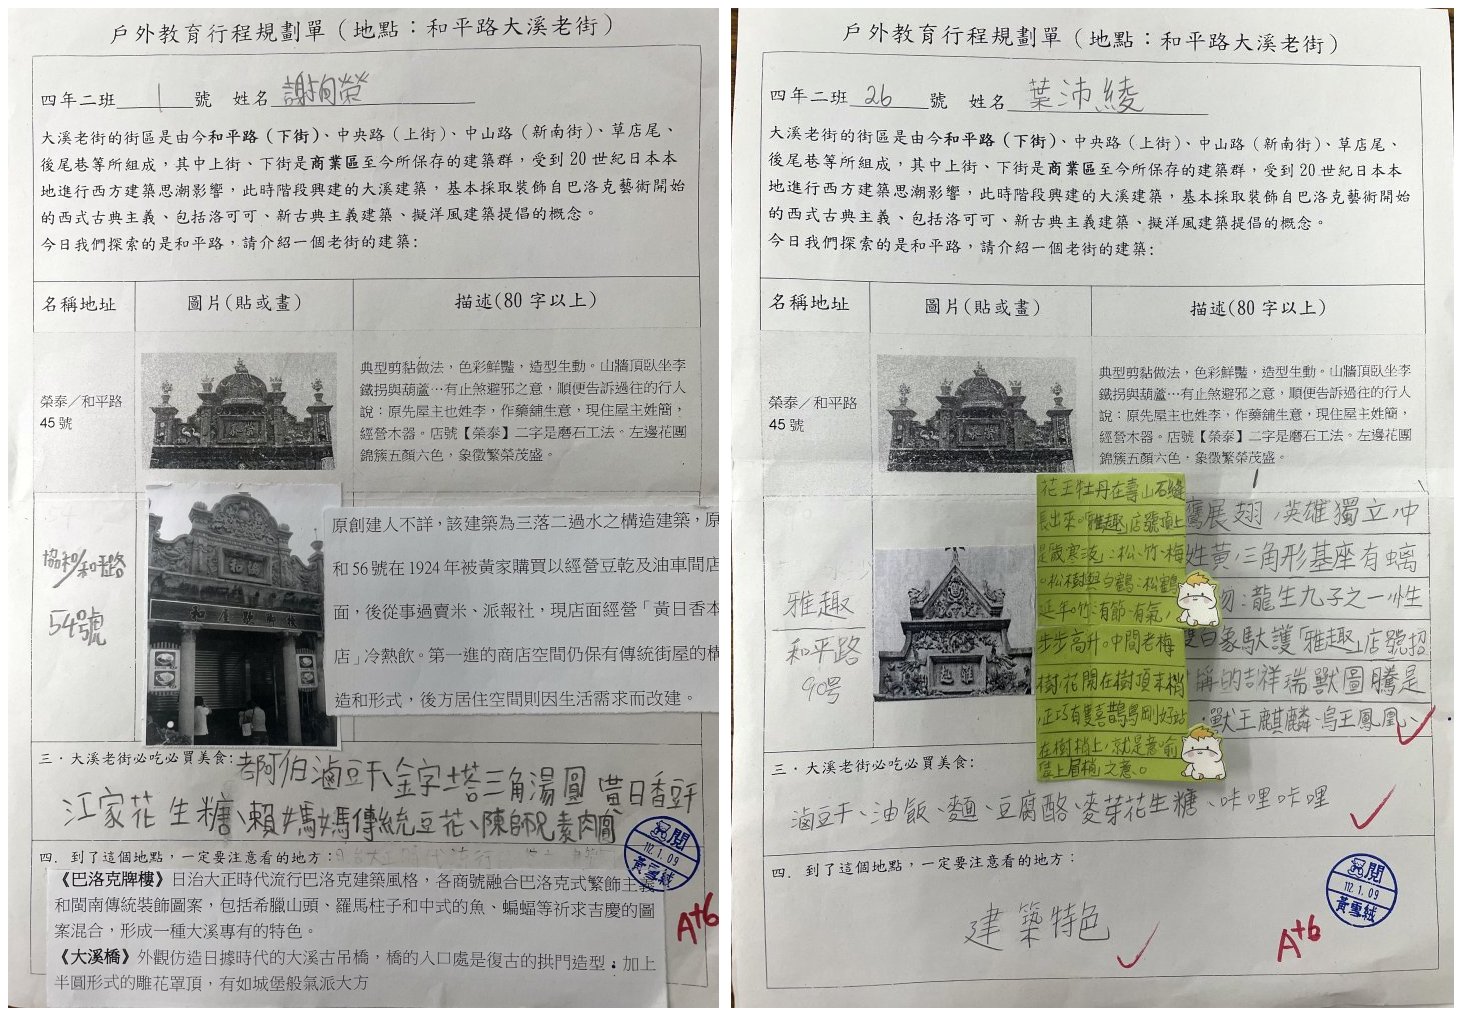 戶外教育行程規劃單（地點：和平路大溪老街）
四年二班 1 號 姓名 謝栩榮
大溪老街的街區是由今和平路（下街）、中央路（上街）、中山路（新南街）、草店尾、
後尾巷等所組成，其中上街、下街是商業區至今所保存的建築群，受到 20 世紀日本本
地進行西方建築思潮影響，此時階段興建的大溪建築，基本採取裝飾自巴洛克藝術開始
的西式古典主義、包括洛可可、新古典主義建築、擬洋風建築提倡的概念。
今日我們探索的是和平路，請介紹一個老街的建築:
名稱地址 圖片(貼或畫) 描述(80 字以上)
榮泰／和平路
45 號
典型剪黏做法，色彩鮮豔，造型生動。山牆頂臥坐李
鐵拐與葫蘆…有止煞避邪之意，順便告訴過往的行人
說：原先屋主也姓李，作藥鋪生意，現住屋主姓簡，
經營木器。店號【榮泰】二字是磨石工法。左邊花團
錦簇五顏六色，象徵繁榮茂盛。
協和/和平路
54號
原創建人不詳，該建築為三落二過水之構造建築，原
和 56 號在 1924 年被黃家購買以經營豆乾及油車間店
面，後從事過賣米、派報社，現店面經營「黃日香本
店」冷熱飲。第一進的商店空間仍保有傳統街屋的構
造和形式，後方居住空間則因生活需求而改建。
三．大溪老街必吃必買美食:老阿伯滷豆干、金字塔三角湯圓 黃日香豆干
江家花生糖、賴媽媽傳統豆花、陳師兄素肉圓
四．到了這個地點，一定要注意看的地方：
《巴洛克牌樓》日治大正時代流行巴洛克建築風格，各商號融合巴洛克式繁飾主義
和閩南傳統裝飾圖案，包括希臘山頭、羅馬柱子和中式的魚、蝙蝠等祈求吉慶的圖
案混合，形成一種大溪專有的特色。
《大溪橋》外觀仿造日據時代的大溪古吊橋，橋的入口處是復古的拱門造型；加上
半圓形式的雕花罩頂，有如城堡般氣派大方
閱
112.1.09
黃雪絨
A+6
戶外教育行程規劃單（地點：和平路大溪老街）
四年二班 26 號 姓名 葉沛綾
大溪老街的街區是由今和平路（下街）、中央路（上街）、中山路（新南街）、草店尾、
後尾巷等所組成，其中上街、下街是商業區至今所保存的建築群，受到 20 世紀日本本
地進行西方建築思潮影響，此時階段興建的大溪建築，基本採取裝飾自巴洛克藝術開始
的西式古典主義、包括洛可可、新古典主義建築、擬洋風建築提倡的概念。
今日我們探索的是和平路，請介紹一個老街的建築:
名稱地址 圖片(貼或畫) 描述(80 字以上)
榮泰／和平路
45 號
典型剪黏做法，色彩鮮豔，造型生動。山牆頂臥坐李
鐵拐與葫蘆…有止煞避邪之意，順便告訴過往的行人
說：原先屋主也姓李，作藥鋪生意，現住屋主姓簡，
經營木器。店號【榮泰】二字是磨石工法。左邊花團
錦簇五顏六色，象徵繁榮茂盛。
雅趣
和平路
90号
花王牡丹在壽山石縫
長出來。「雅趣」店號頂上
是歲寒三友：松、竹、梅
。松樹與白鶴：松鶴
延年。竹：有節、有氣，
步步高升。中間老梅
樹，花開在樹頂末梢
，正巧有隻喜鵲鳥剛好站
在樹梢上，就是意喻
喜上眉梢之意。
鷹展翅，英雄獨立，中
姓黃，三角形基座有螭
吻：龍生九子之一，性
白象馱護「雅趣」店號招
稱的吉祥瑞獸圖騰是
：獸王麒麟、鳥王鳳凰、
三．大溪老街必吃必買美食:
滷豆干、油飯、麵、豆腐酪、麥芽花生糖、咔哩咔哩
四．到了這個地點，一定要注意看的地方：
建築特色
閱
112.1.09
黃雪絨
A+6